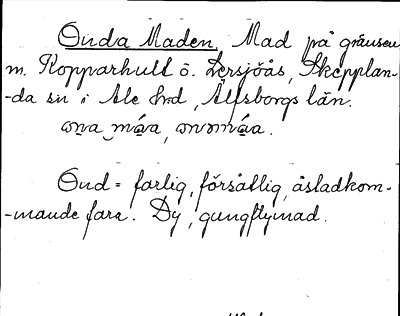 Onda Maden, Mad på gränsen
m. Kopparhult o. Dersjöås, Skepplan-
-da sn i Ale hrd, Älfsborgs län.

Ond = farlig, försåtlig, åsladkom-
-mande fara. Dy, gungflymad.